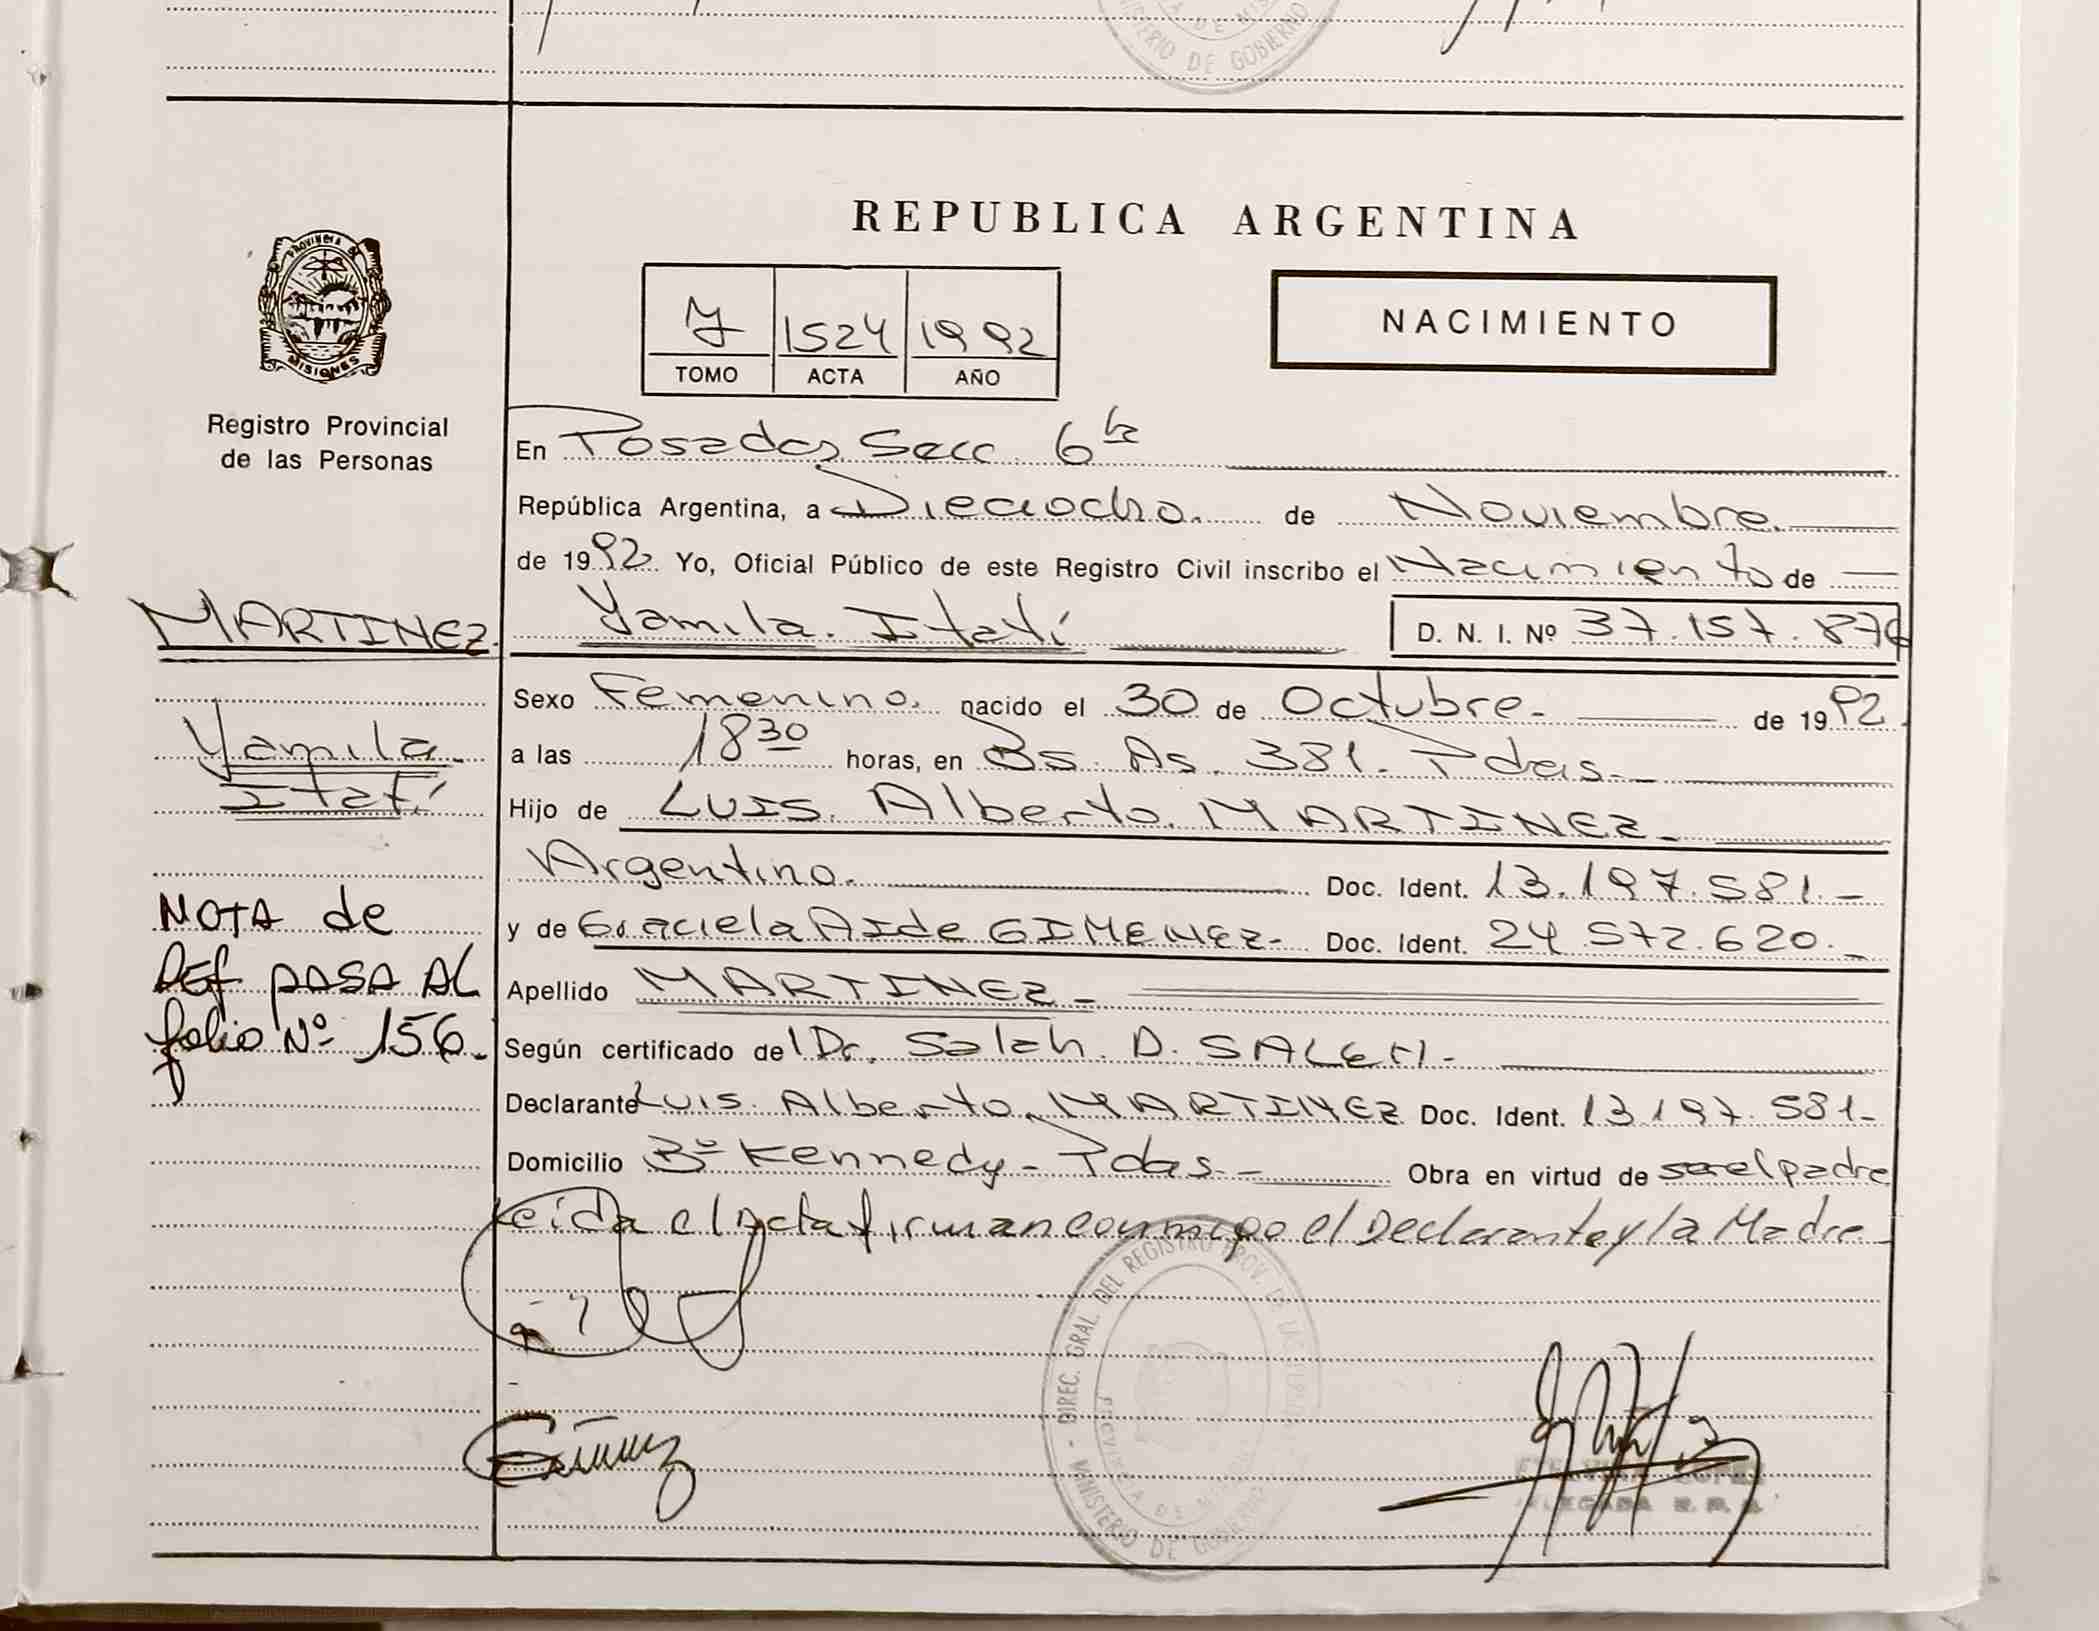 MINISTERIO DE GOBIERNO
REPUBLICA ARGENTINA
PROVINCIA DE
MISIONES
1524 1992
TOMO ACTA AÑO
NACIMIENTO
Registro Provincial
de las Personas
En Posadas, Secc. 6ta
República Argentina, a Dieciocho. de Noviembre.
de 1992 Yo, Oficial Público de este Registro Civil inscribo el Nacimiento de
MARTINEZ. Yamila. Itatí D. N. I. Nº 37.157.876
Sexo Femenino. nacido el 30 de Octubre. de 1992.
Yamila
Itatí
a las 18 30 horas, en Bs. As. 381. Pdas.
Hijo de LUIS. Alberto. MARTINEZ.
Argentino. Doc. Ident. 13.197.581.-
y de Graciela AIde GIMENEZ- Doc. Ident. 24.572.620.
NOTA de
DEf PASA AL
folio Nº 156.
Apellido MARTINEZ-
Según certificado de Dr. Salah. D. SALEH.-
Declarante LUIS. Alberto. MARTINEZ Doc. Ident. 13.197.581-
Domicilio Bº Kennedy - Pdas.- Obra en virtud de ser el padre
Leída el Acta firman conmigo el Declarante y la Madre
MINISTERIO DE GOBIERNO - DIREC. GRAL. DEL REGISTRO PROV. DE LAS
PROVINCIA DE
DELEGADA R. P. P.